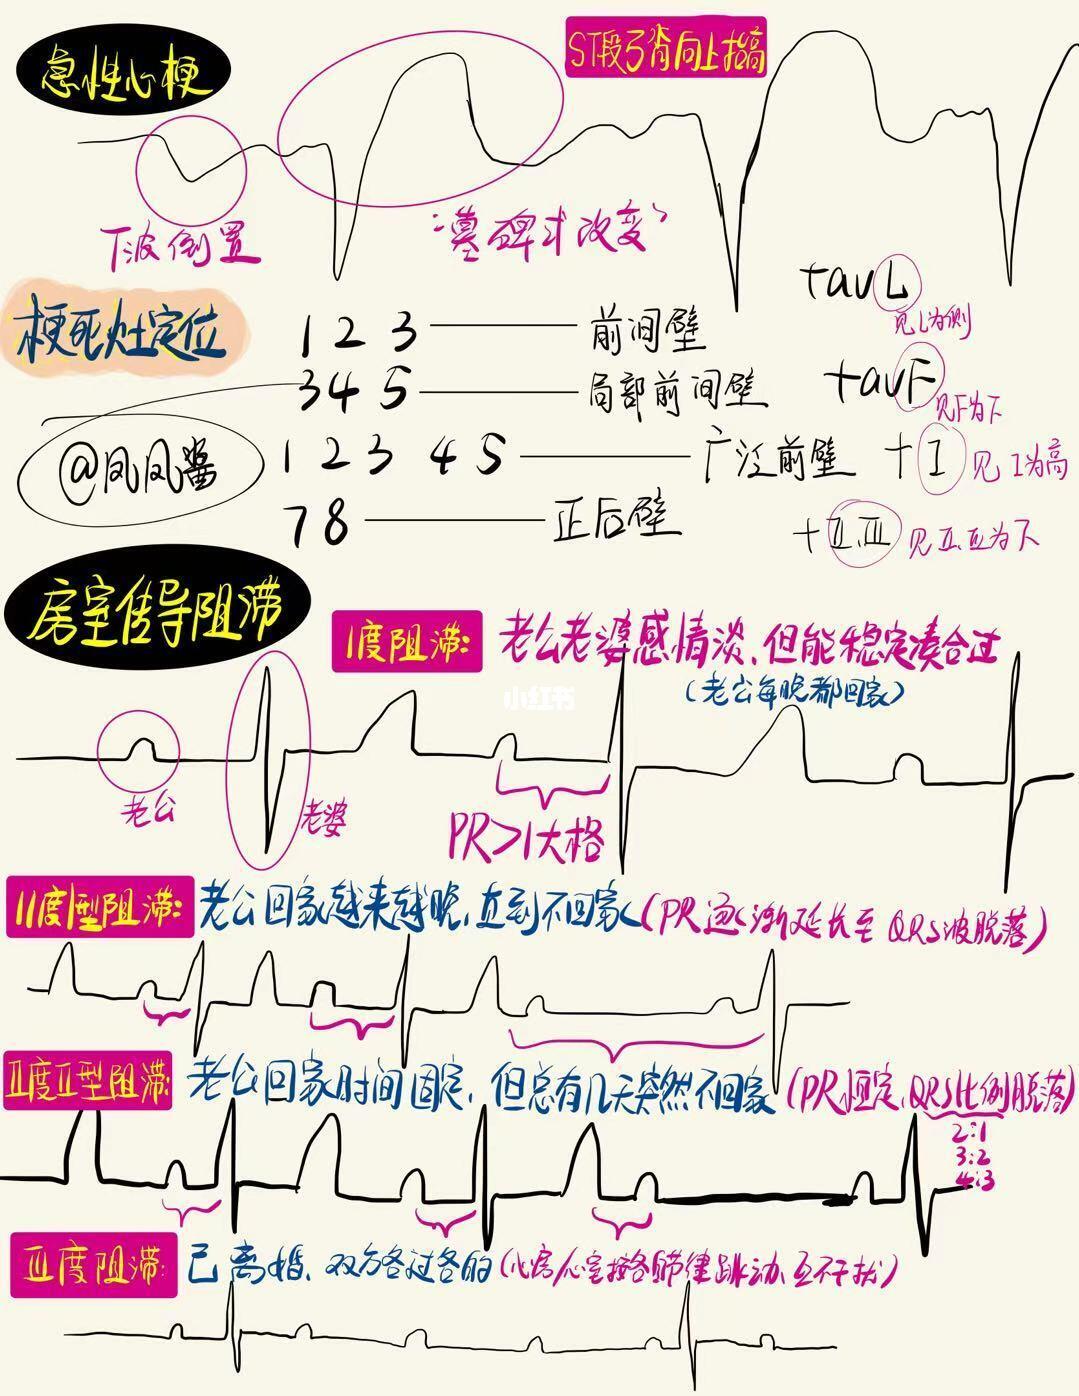 急性心梗
ST段弓背向上抬高
T波倒置
"墓碑式改变"
梗死灶定位
1 2 3 前间壁
+avL
见L为侧
3 4 5 局部前间壁
+avF
见F为下
@凤凤酱
1 2 3 4 5 广泛前壁
+I 见I为高
7 8 正后壁
+II、III 见II、III为下
房室传导阻滞
I度阻滞:
老公老婆感情淡、但能稳定凑合过
(老公每晚都回家)
小红书
老公
老婆
PR>1大格
II度I型阻滞: 老公回家越来越晚,直到不回家(PR逐渐延长至QRS波脱落)
II度II型阻滞: 老公回家时间固定,但总有几天突然不回家(PR恒定、QRS比例脱落)
2:1
3:2
4:3
III度阻滞: 已离婚、双方各过各的(心房心室按各自节律跳动、互不干扰)